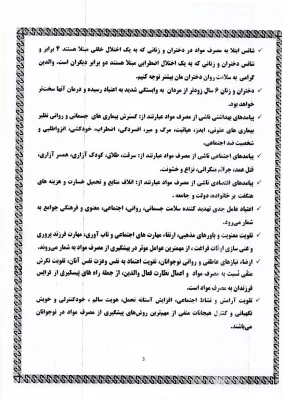 شانس ابتلا به مصرف مواد در دختران و زنانی که به یک اختلال خلقی مبتلا هستند ۴ برابر و
دختران و زنانی که به یک اختلال اضطرابی مبتلا هستند دو برابر دیگران است. والدین
گرامی به سلامت روان دختران مان بیشتر توجه کنیم.
دختران و زنان ۶ سال زودتر از مردان به وابستگی شدید به اعتیاد رسیده و درمان آنها سخت‌تر
خواهد بود.
پیامدهای بهداشتی ناشی از مصرف مواد عبارتند از: گسترش بیماری های جسمانی و روانی نظیر
بیماری های مقاربتی، ایدز، هپاتیت، مرگ و میر، افسردگی، اضطراب، خودکشی، انزواطلبی و
شخصیت ضد اجتماعی.
پیامدهای اجتماعی ناشی از مصرف مواد عبارتند از: سرقت، طلاق، کودک آزاری، همسر آزاری،
قتل عمد، جرائم منکراتی، نزاع و خشونت.
پیامدهای اقتصادی ناشی از مصرف مواد عبارتند از: اتلاف منابع و تحمیل خسارت و هزینه های
هنگفت بر خانواده، دولت و جامعه .
اعتیاد عامل جدی تهدید کننده سلامت جسمانی، روانی، اجتماعی، معنوی و فرهنگی جوامع به
شمار می‌رود.
تقویت معنویت و باورهای مذهبی، ارتقاء مهارت های اجتماعی و تاب آوری، مهارت فرزند پروری
و غنی سازی اوقات فراغت ، از مهمترین عوامل موثر در پیشگیری از مصرف مواد به شمار می‌روند.
ارضاء نیازهای عاطفی و روانی نوجوانان، تقویت اعتماد به نفس وعزت نفس آنان، تقویت نگرش
منفی نسبت به مصرف مواد و اعمال نظارت فعال والدین، از جمله راه های پیشگیری از گرایش
فرزندان به مصرف مواد است.
تقویت آرامش و نشاط اجتماعی، افزایش آستانه تحمل، هویت سالم ، خودکنترلی و خویش
نگهبانی و کنترل هیجانات منفی از مهمترین روش‌های پیشگیری از مصرف مواد در نوجوانان
می‌باشند.
3